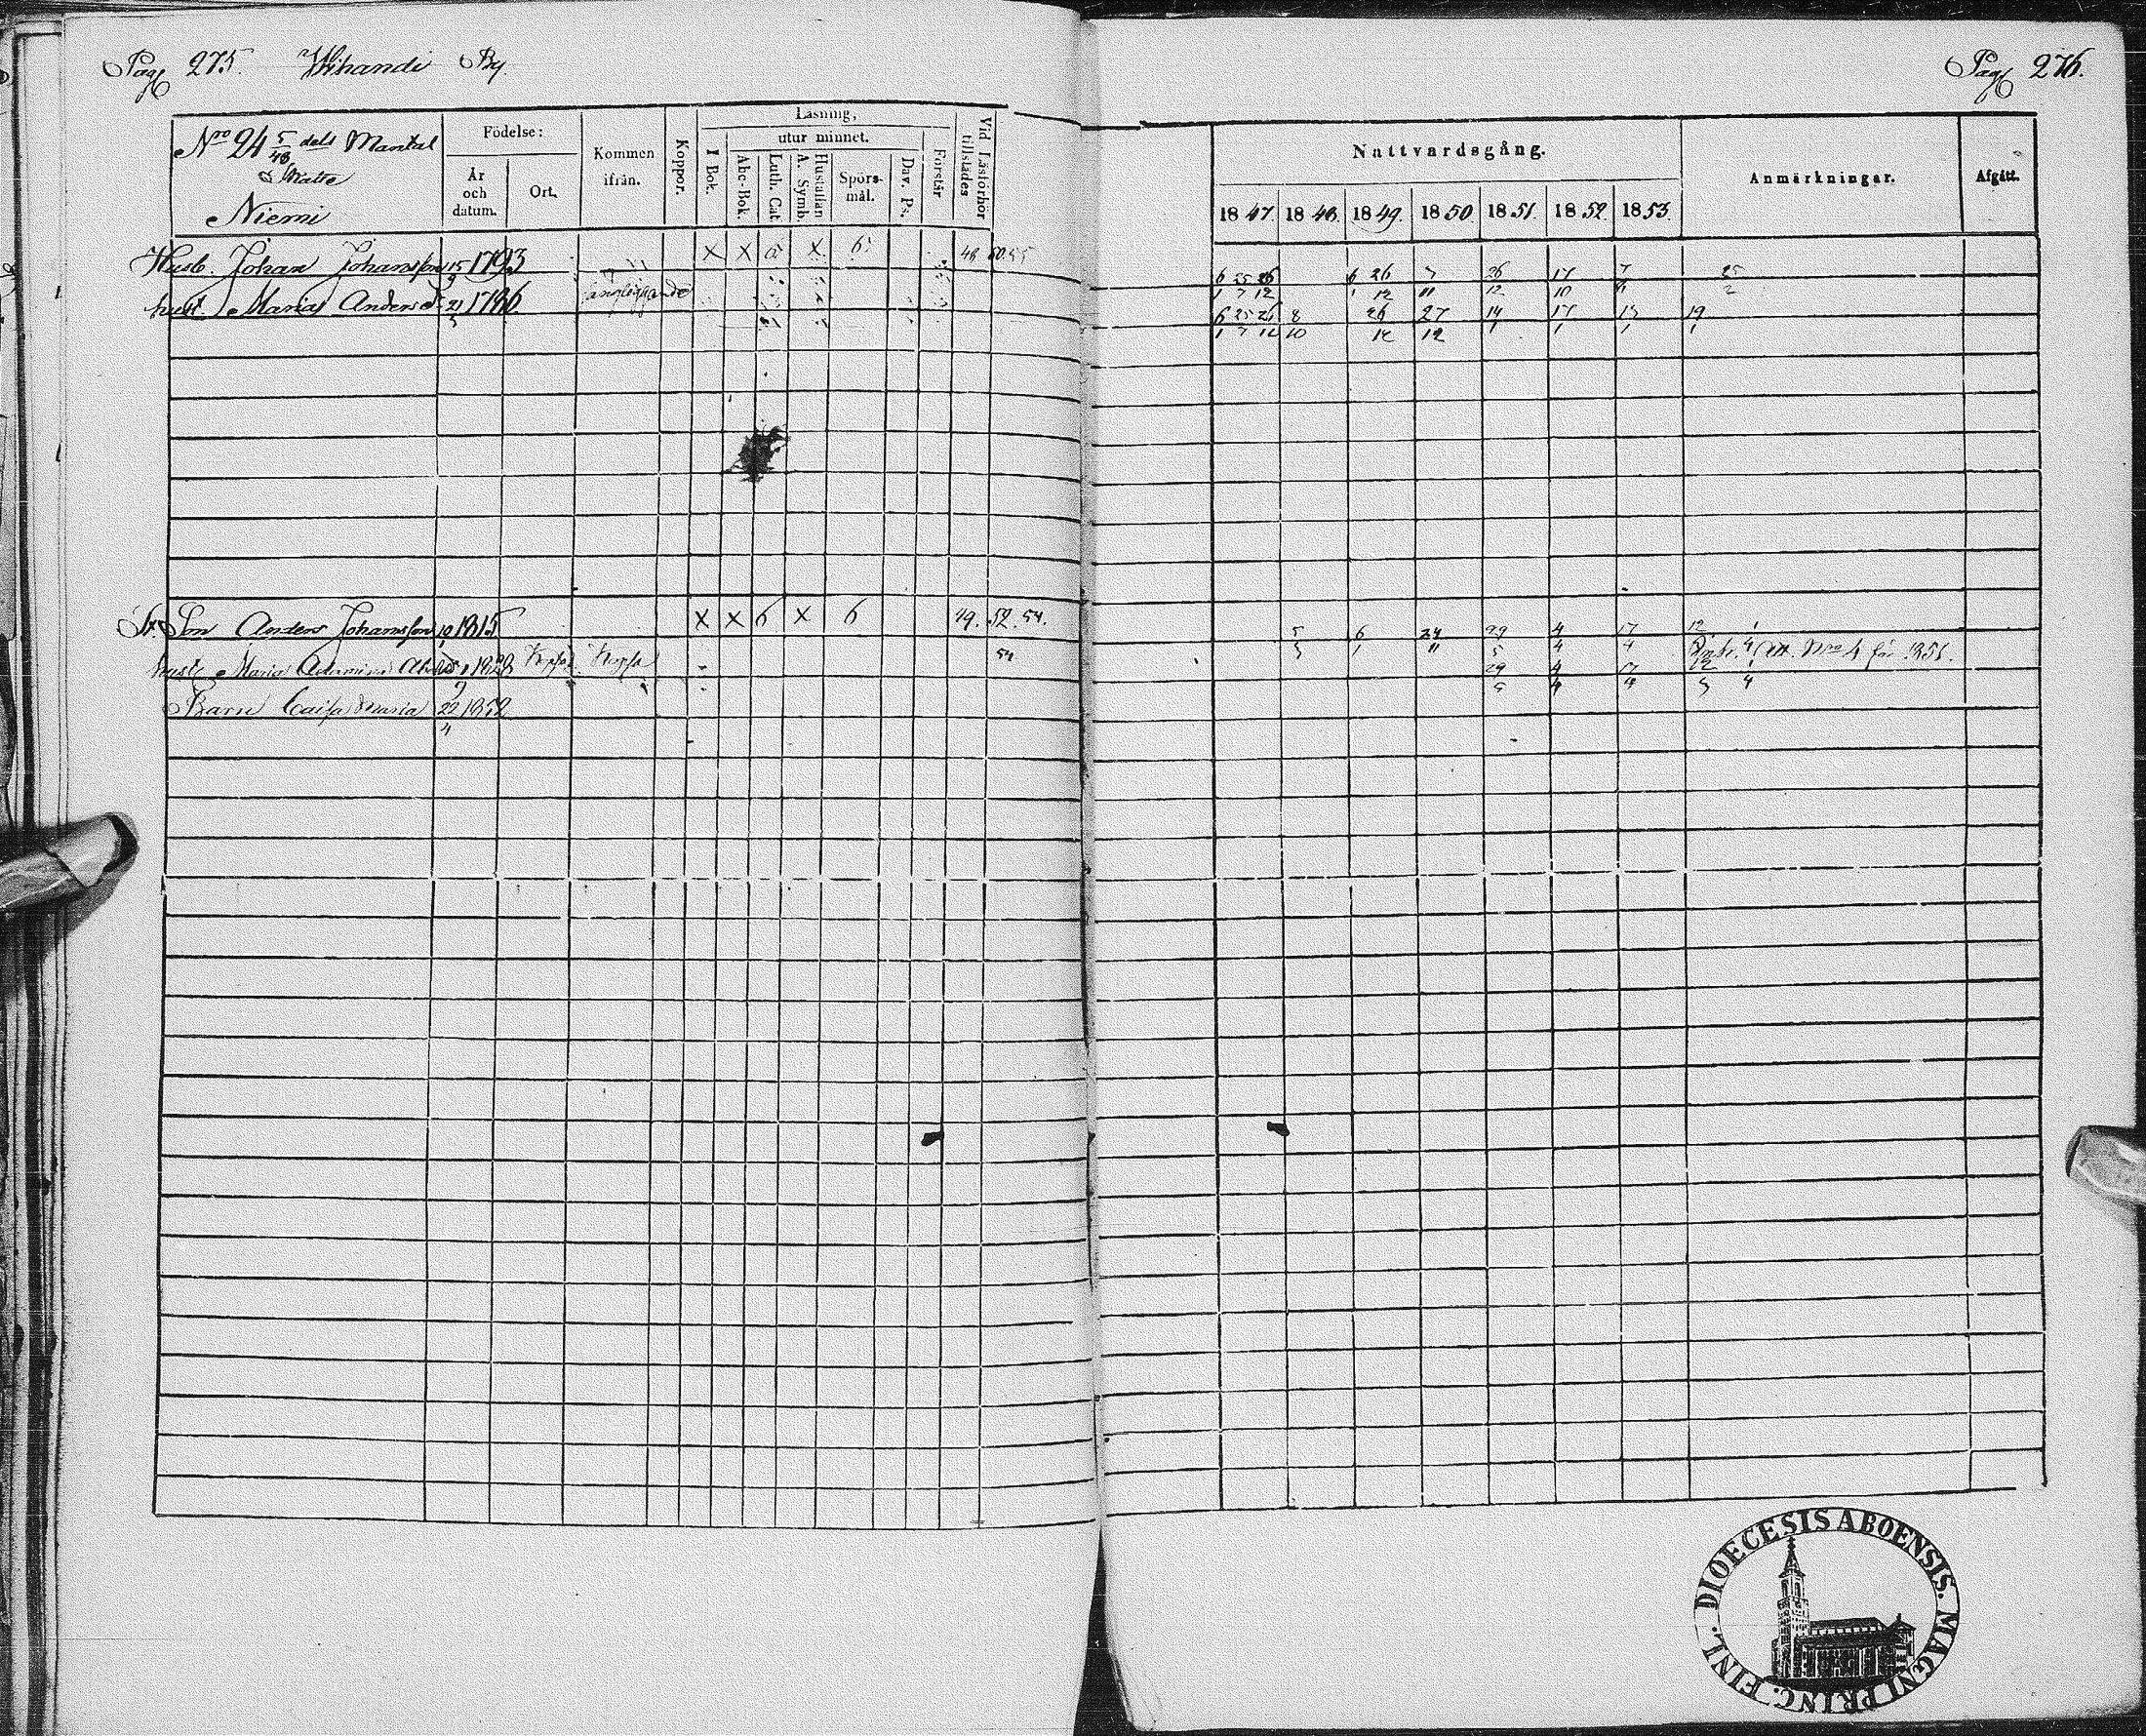 Pag 275. Wihandi By.
Pag 276.
Nro 24 5/48 dels Mantal
Skatte
Niemi
Födelse:
År och datum.
Ort.
Kommen ifrån.
Koppor.
Läsning,
I Bok.
utur minnet.
Abc-Bok.
Luth. Cat.
Hustaflan A. Symb.
Spörs-mål.
Dav. Ps.
Förstår
Vid Läsförhör tillstädes
Nattvardsgång.
1847. 1848. 1849. 1850. 1851. 1852. 1853.
Anmärkningar.
Afgått.
Husb. Johan Johansson 15/9 1793 X X 6 X 6 48 50.55
6/1 25/7 26/12 6/1 26/12 7/11 26/12 17/10 7/11 25/2
hust. Maria Andersd. 21/3 1786 sängliggande
6/1 25/7 26/12 8/10 26/12 27/12 14/1 17/1 15/1 19/1
St. Son Anders Johansson 19/1 1815 X X 6 X 6 49. 52. 54.
5/5 6/1 24/11 29/5 4/4 17/4 12/3 1/4
hust. Maria 1828 54
Att. Nro 4 för 1851.
29/5 4/4 17/4 12/3 1/4
Barn Caisa Maria 22/4 1852
DIOECESIS ABOENSIS. MAGNI PRINC. FINL.